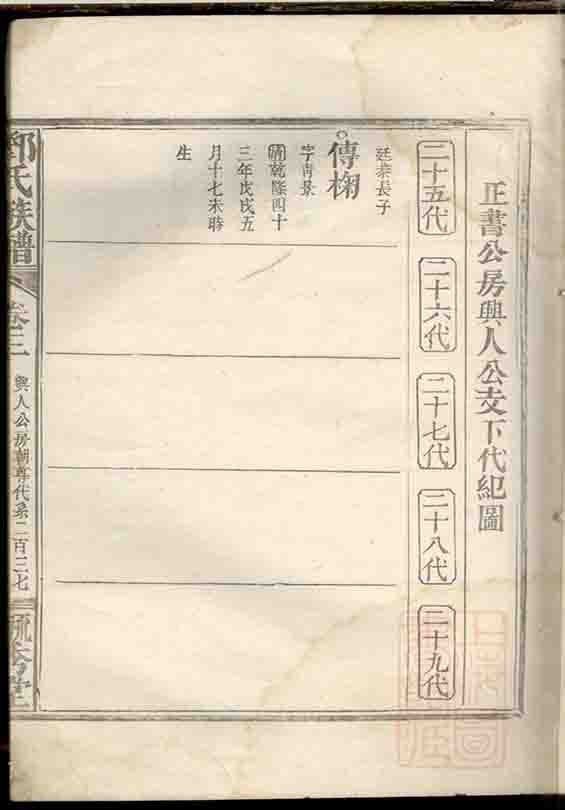 正書公房興人公支下代紀圖
二十五代
二十六代
二十七代
二十八代
二十九代
廷恭長子
傳椈
字靑景
清乾隆四十
三年戊戌五
月十七未時
生
氏族譜
卷三
興人公房朝尊代系二百三七